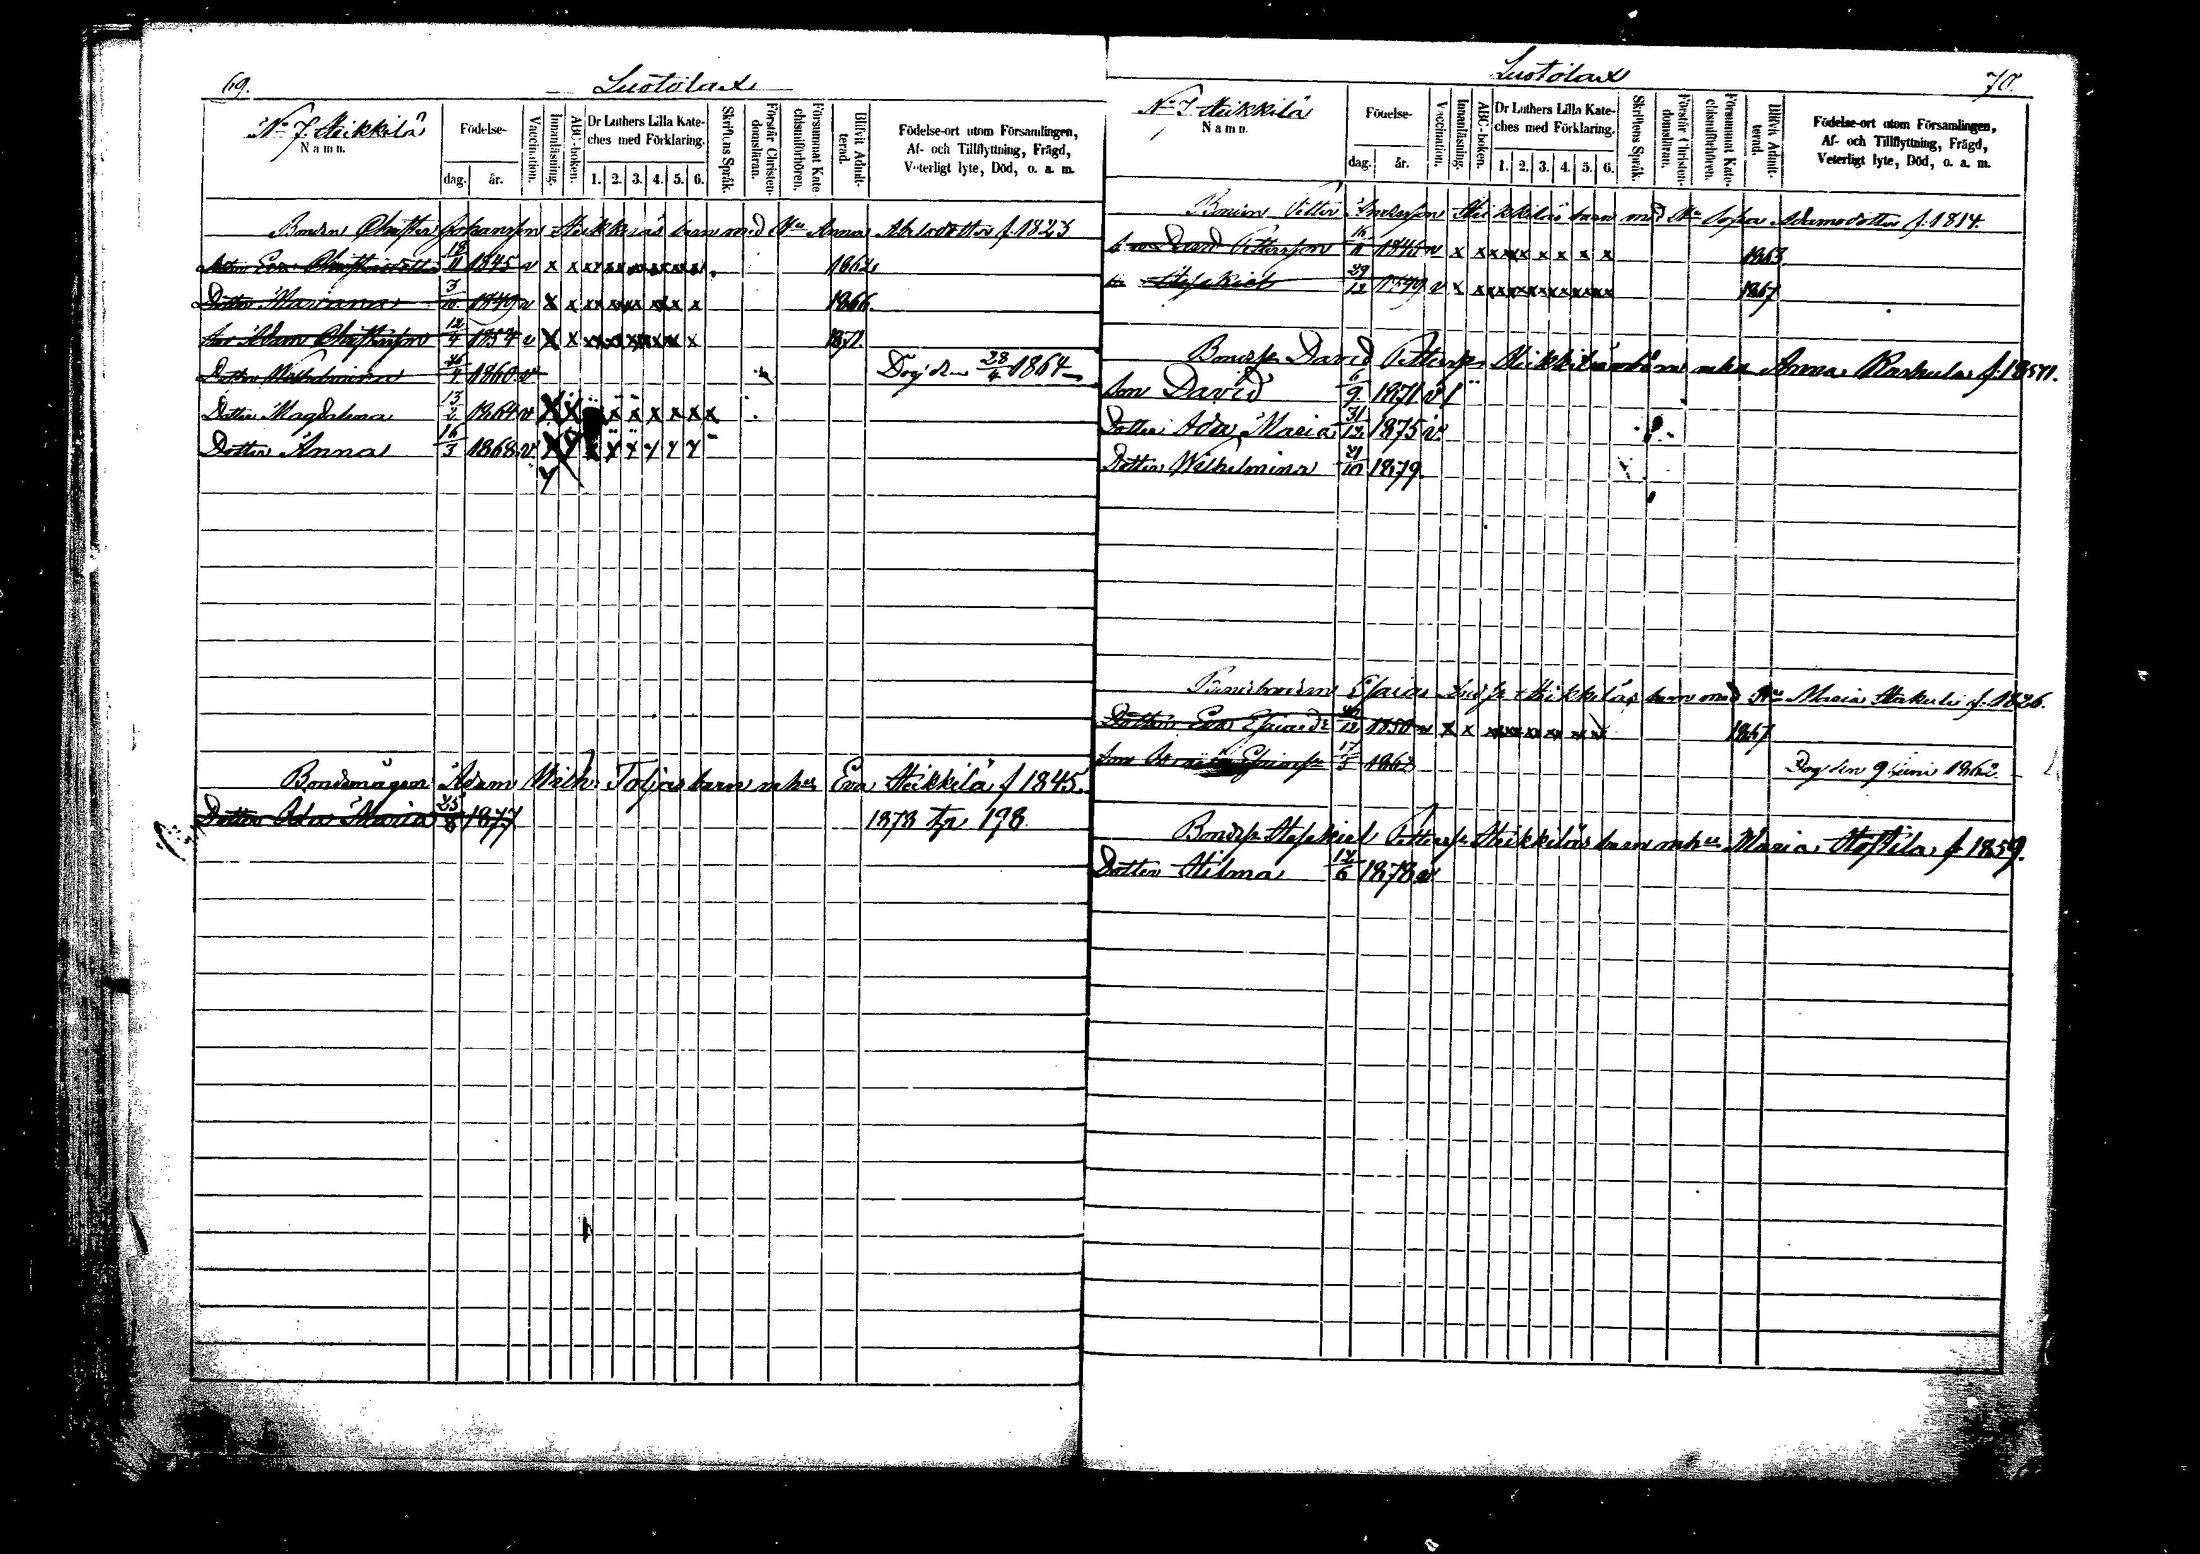 69.
Luotolax
No 7 Heikkilä
Namn.
Födelse-
dag. år.
Vaccination.
Innanläsning.
ABC-boken.
Dr Luthers Lilla Kate-
ches med Förklaring.
1. 2. 3. 4. 5. 6.
Skriftens Språk.
Förstår Christen-
domsläran.
Försummat Kate
chismiförhören.
Blifvit Admit-
terad.
Födelse-ort utom Församlingen,
Af- och Tillflyttning, Frägd,
Veterligt lyte, Död, o. a. m.
Bonden Christer Johansson Heikkiläs barn med Hu Anna Abelsdotter f. 1823
Dotter Eva Christersdotter 18/11 1845 v x x x x x x x x 1862.
Dotter Mariana 3/10 1849 v x x x x x x x x 1866.
Son Adam Christersson 12/4 1854 v x x x x x x x x 1871.
Dotter Wilhelmina 1860 v Dog den 28/4 1864
Dotter Magdalena 13/2 1864 v x x x x x x x x
Dotter Anna 16/3 1868 v x x x x x x x x
Bondemågen Adam Wilh: Toljas barn m hu Eva Heikkilä f 1845.
Dotter Ada Maria 25/8 1877 1878 Tr 198.
70.
Luotolax
No 7 Heikkilä
Namn.
Födelse-
dag. år.
Vaccination.
Innanläsning.
ABC-boken.
Dr Luthers Lilla Kate-
ches med Förklaring.
1. 2. 3. 4. 5. 6.
Skriftens Språk.
Förstår Christen-
domsläran.
Försummat Kate-
chismiförhören.
Blifvit Admit-
terad.
Födelse-ort utom Församlingen,
Af- och Tillflyttning, Frägd,
Veterligt lyte, Död, o. a. m.
Bonden Petter Andersson Heikkiläs barn med Hu Sofia Adamsdotter f. 1814.
Son David Pettersson 16/11 1845 v x x x x x x x x 1863.
Hesekiel 29/12 1849 v x x x x x x x x 1867
Bondes. David Petterss. Heikkilä barn m hu Anna f. 1850.
Son David 6/9 1871 v
Dotter Ada Maria 31/12 1875 v.
Dotter Wilhelmina 21/10 1879.
Esaias Heikkiläs barn med Hu Maria f. 1826.
Dotter Eva Esaiasdr 1850 v x x x x x x x x 1867
Son Esaiass. 17/5 1862 Dog den 9 Juni 1862.
Bondes. Hesekiel Petterss. Heikkiläs barn m hu Maria f. 1859.
Dotter Hilma 14/6 1878 v